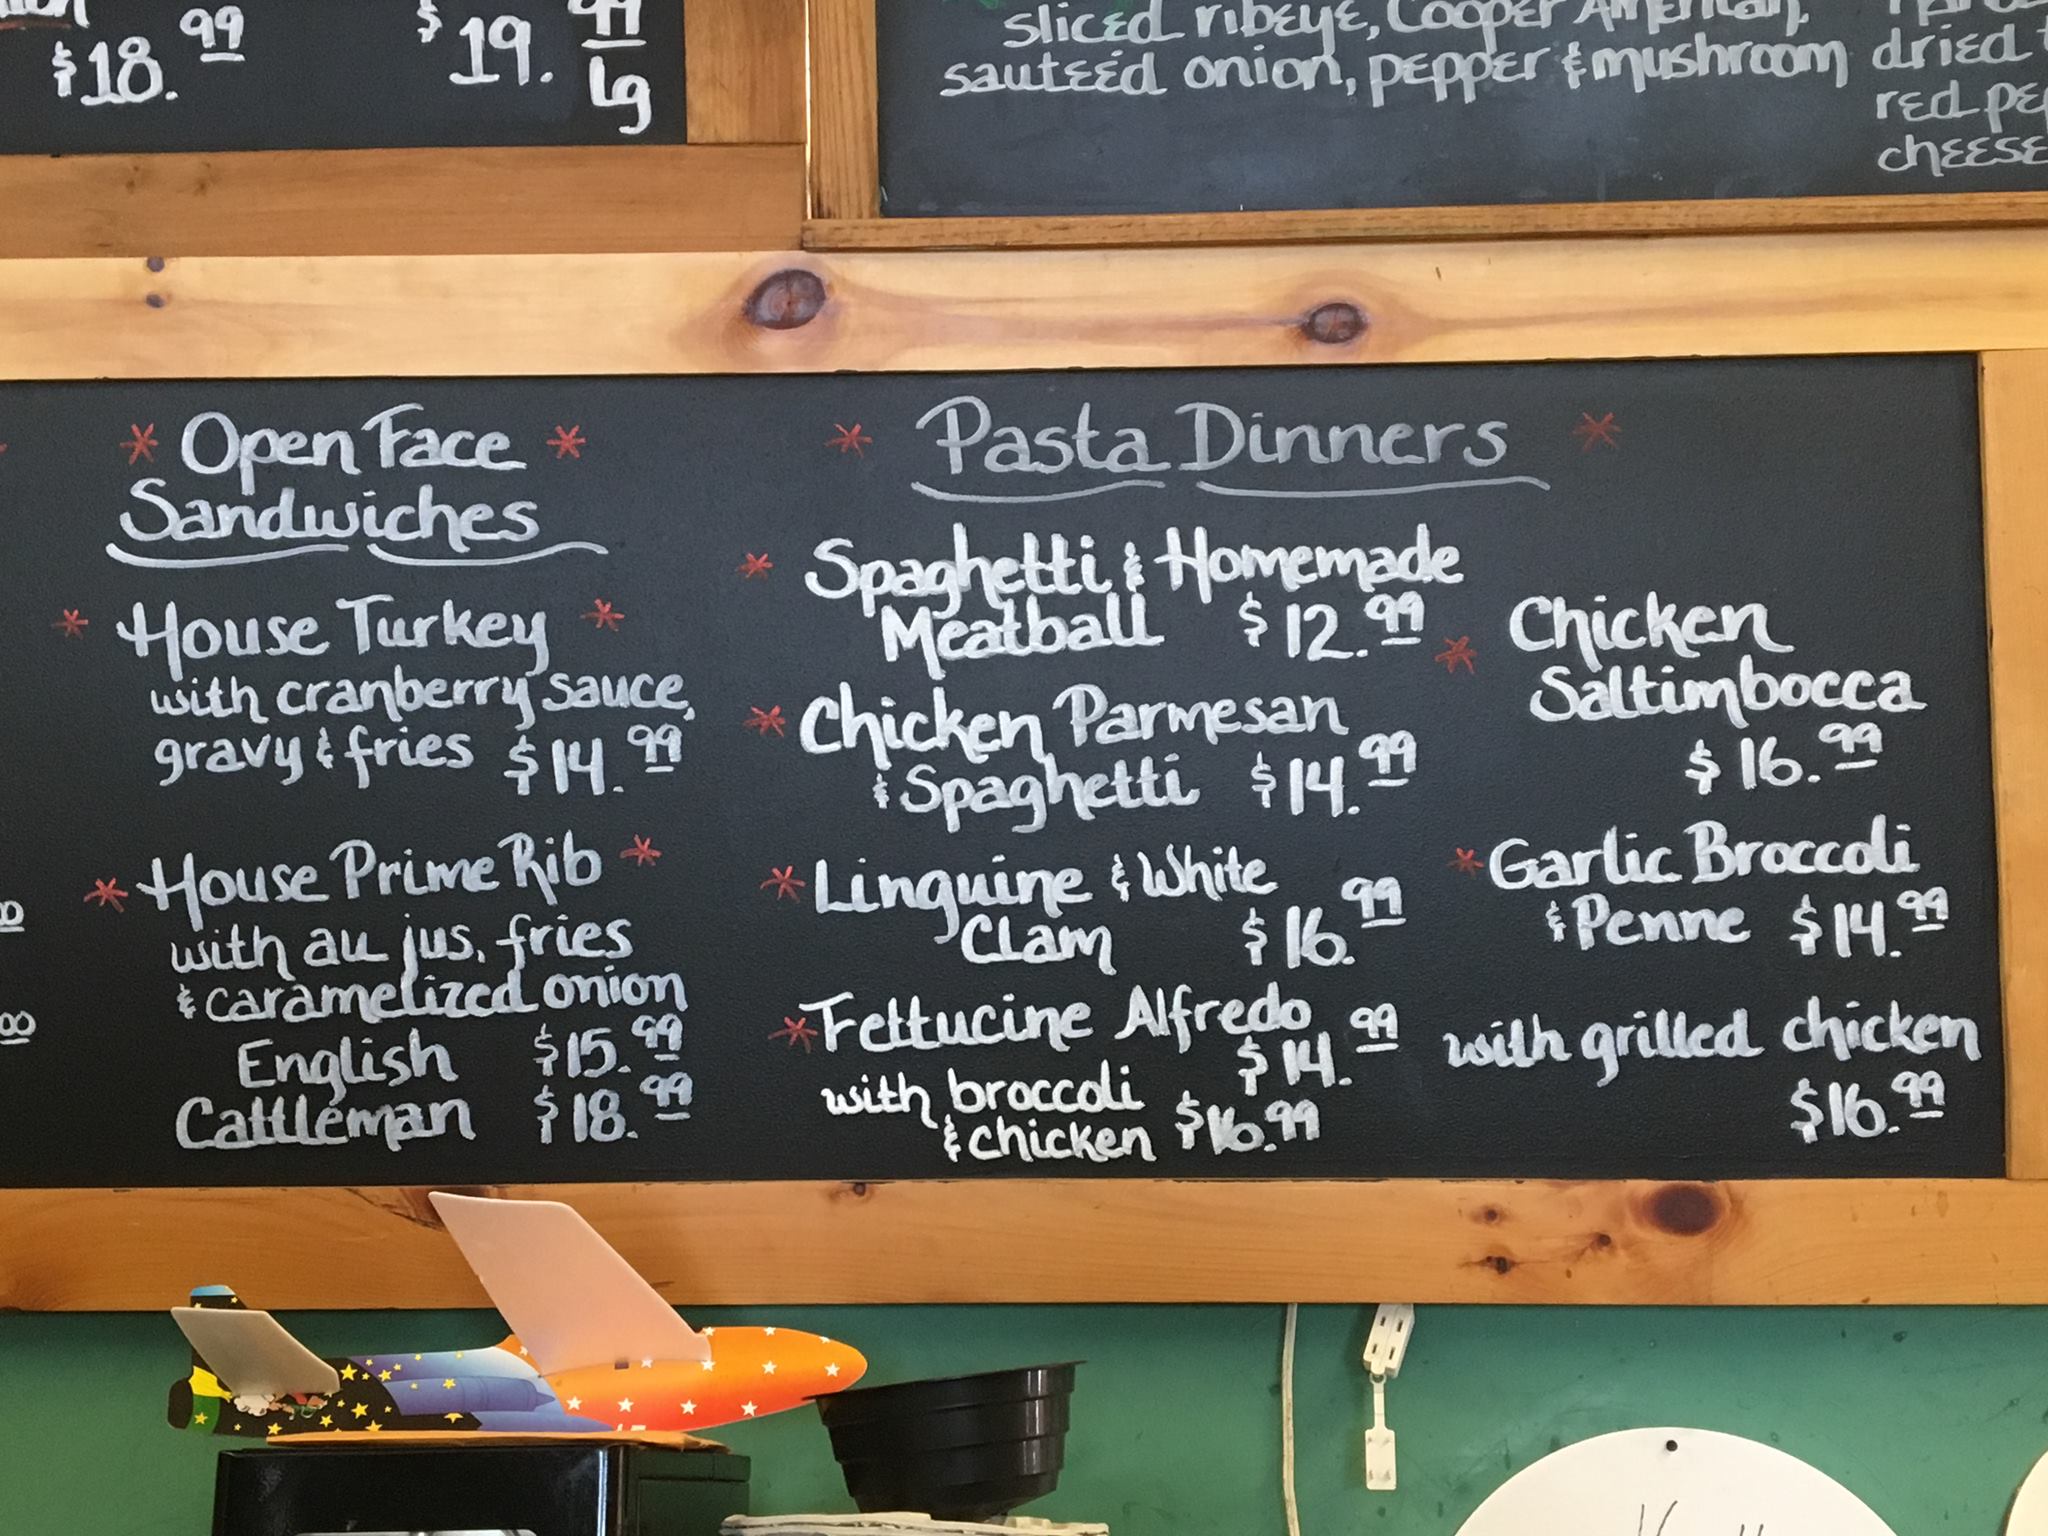 $18.99
$19.99
Lg
sliced ribeye, Cooper American,
sauteéd onion, pepper & mushroom
dried
red
cheese
* Open Face *
Sandwiches
* House Turkey *
with cranberry sauce,
gravy & fries $14.99
* House Prime Rib *
with au jus, fries
& caramelized onion
English $15.99
Cattleman $18.99
* Pasta Dinners *
* Spaghetti & Homemade
Meatball $12.99
* Chicken Parmesan
& Spaghetti $14.99
* Linguine & White
Clam $16.99
* Fettucine Alfredo
$14.99
with broccoli
& chicken $16.99
* Chicken
Saltimbocca
$16.99
* Garlic Broccoli
& Penne $14.99
with grilled chicken
$16.99